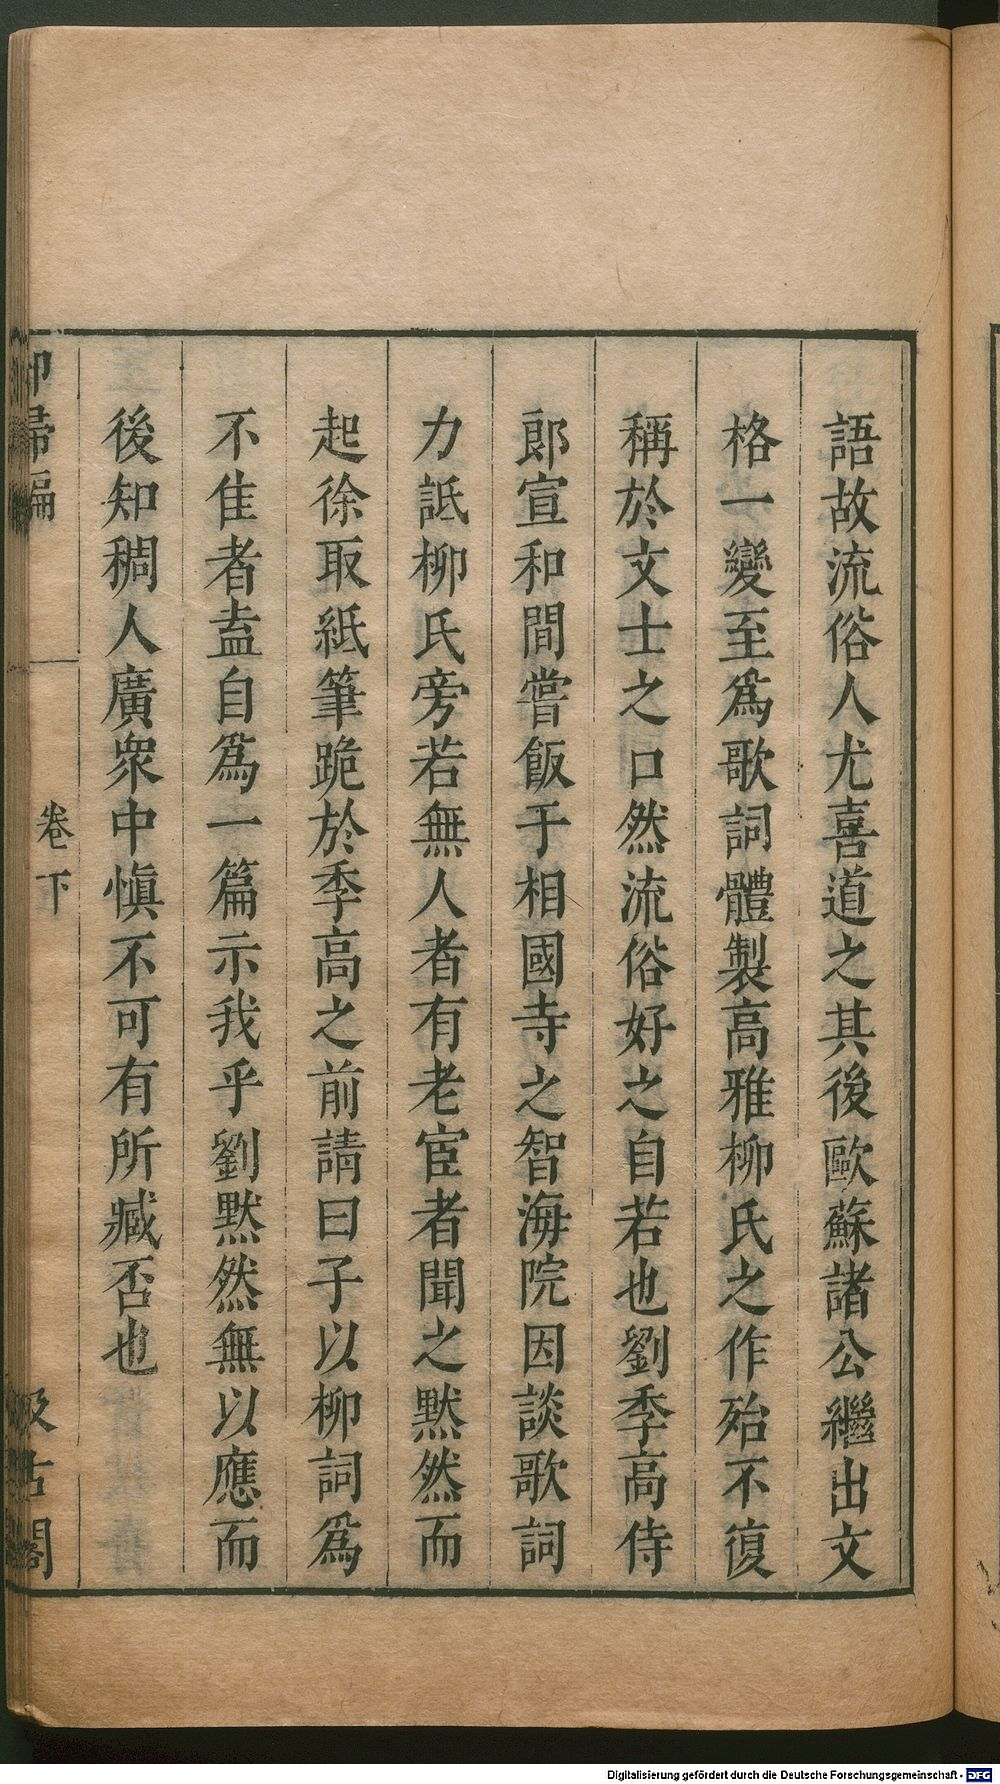 語故流俗人尤喜道之其後歐蘇諸公繼出文
格一變至爲歌詞體製高雅柳氏之作殆不復
稱於文士之口然流俗好之自若也劉季高侍
郎宣和間嘗飯于相國寺之智海院因談歌詞
力詆柳氏旁若無人者有老宦者聞之黙然而
起徐取紙筆跪於季高之前請曰子以柳詞爲
不佳者盍自爲一篇示我乎劉黙然無以應而
後知稠人廣衆中愼不可有所臧否也
卻掃編
卷下
汲古閣
Digitalisierung gefördert durch die Deutsche Forschungsgemeinschaft - DFG